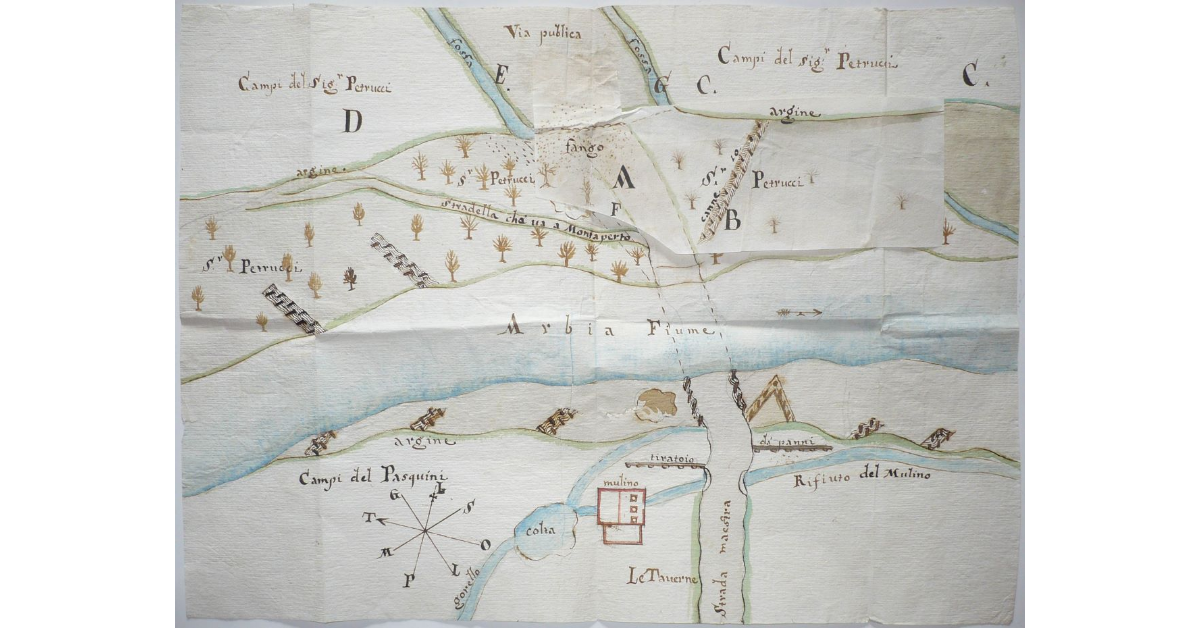 fossa
Via publica
fossa
Campi del Sig.r Petrucci
Campi del Sig.r Petrucci
E.
G
C.
C.
D
argine
argine.
fango
S.r Petrucci
A
F
S.r Petrucci
canne
B
Stradella che va a Montaperto
S.r Petrucci
Arbia Fiume
argine
tiratoio
da panni
Campi del Pasquini
mulino
Rifiuto del Mulino
G
L
S
T
O
M
P
I
colta
gorello
Le Taverne
Strada maestra